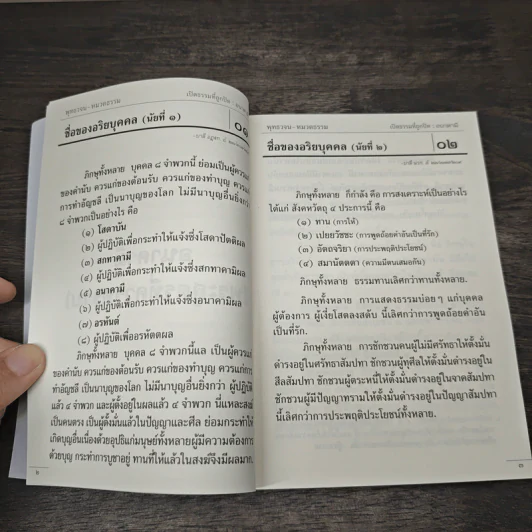 พุทธวจน - หมวดธรรม
เปิดธรรมที่ถูกปิด :
ชื่อของอริยบุคคล (นัยที่ ๑)
๐๑
ภิกษุทั้งหลาย บุคคล ๘ จำพวกนี้ ย่อมเป็นผู้ควรแก่
ของคำนับ ควรแก่ของต้อนรับ ควรแก่ของทำบุญ ควรแก่
การทำอัญชลี เป็นนาบุญของโลก ไม่มีนาบุญอื่นยิ่งกว่า
๘ จำพวกเป็นอย่างไร คือ
(๑) โสดาบัน
(๒) ผู้ปฏิบัติเพื่อกระทำให้แจ้งซึ่งโสดาปัตติผล
(๓) สกทาคามี
(๔) ผู้ปฏิบัติเพื่อกระทำให้แจ้งซึ่งสกทาคามิผล
(๕) อนาคามี
(๖) ผู้ปฏิบัติเพื่อกระทำให้แจ้งซึ่งอนาคามิผล
(๗) อรหันต์
(๘) ผู้ปฏิบัติเพื่ออรหัตตผล
ภิกษุทั้งหลาย บุคคล ๘ จำพวกนี้แล เป็นผู้ควรแก่
ของคำนับ ควรแก่ของต้อนรับ ควรแก่ของทำบุญ ควรแก่
การทำอัญชลี เป็นนาบุญของโลก ไม่มีนาบุญอื่นยิ่งกว่า ผู้ปฏิบัติ
แล้ว ๔ จำพวก และผู้ตั้งอยู่ในผลแล้ว ๔ จำพวก นี้แหละสงฆ์
เป็นคนตรง เป็นผู้ตั้งมั่นแล้วในปัญญาและศีล ย่อมกระทำให้
เกิดบุญอันเนื่องด้วยอุปธิแก่มนุษย์ทั้งหลายผู้มีความต้องการ
ด้วยบุญ กระทำการบูชาอยู่ ทานที่ให้แล้วในสงฆ์จึงมีผลมาก
๒
พุทธวจน - หมวดธรรม
เปิดธรรมที่ถูกปิด :
ชื่อของอริยบุคคล (นัยที่ ๒)
๐๒
ภิกษุทั้งหลาย ก็กำลัง คือ การสงเคราะห์เป็นอย่างไร
ได้แก่ สังคหวัตถุ ๔ ประการนี้ คือ
(๑) ทาน (การให้)
(๒) เปยยวัชชะ (การพูดถ้อยคำอันเป็นที่รัก)
(๓) อัตถจริยา (การประพฤติประโยชน์)
(๔) สมานัตตตา (ความมีตนเสมอกัน)
ภิกษุทั้งหลาย ธรรมทานเลิศกว่าทานทั้งหลาย.
ภิกษุทั้งหลาย การแสดงธรรมบ่อยๆ แก่บุคคล
ผู้ต้องการ ผู้เงี่ยโสตลงสดับ นี้เลิศกว่าการพูดถ้อยคำอัน
เป็นที่รัก.
ภิกษุทั้งหลาย การชักชวนคนผู้ไม่มีศรัทธาให้ตั้งมั่น
ดำรงอยู่ในศรัทธาสัมปทา ชักชวนผู้ทุศีลให้ตั้งมั่นดำรงอยู่ใน
สีลสัมปทา ชักชวนผู้ตระหนี่ให้ตั้งมั่นดำรงอยู่ในจาคสัมปทา
ชักชวนผู้มีปัญญาทรามให้ตั้งมั่นดำรงอยู่ในปัญญาสัมปทา
นี้เลิศกว่าการประพฤติประโยชน์ทั้งหลาย.
๓